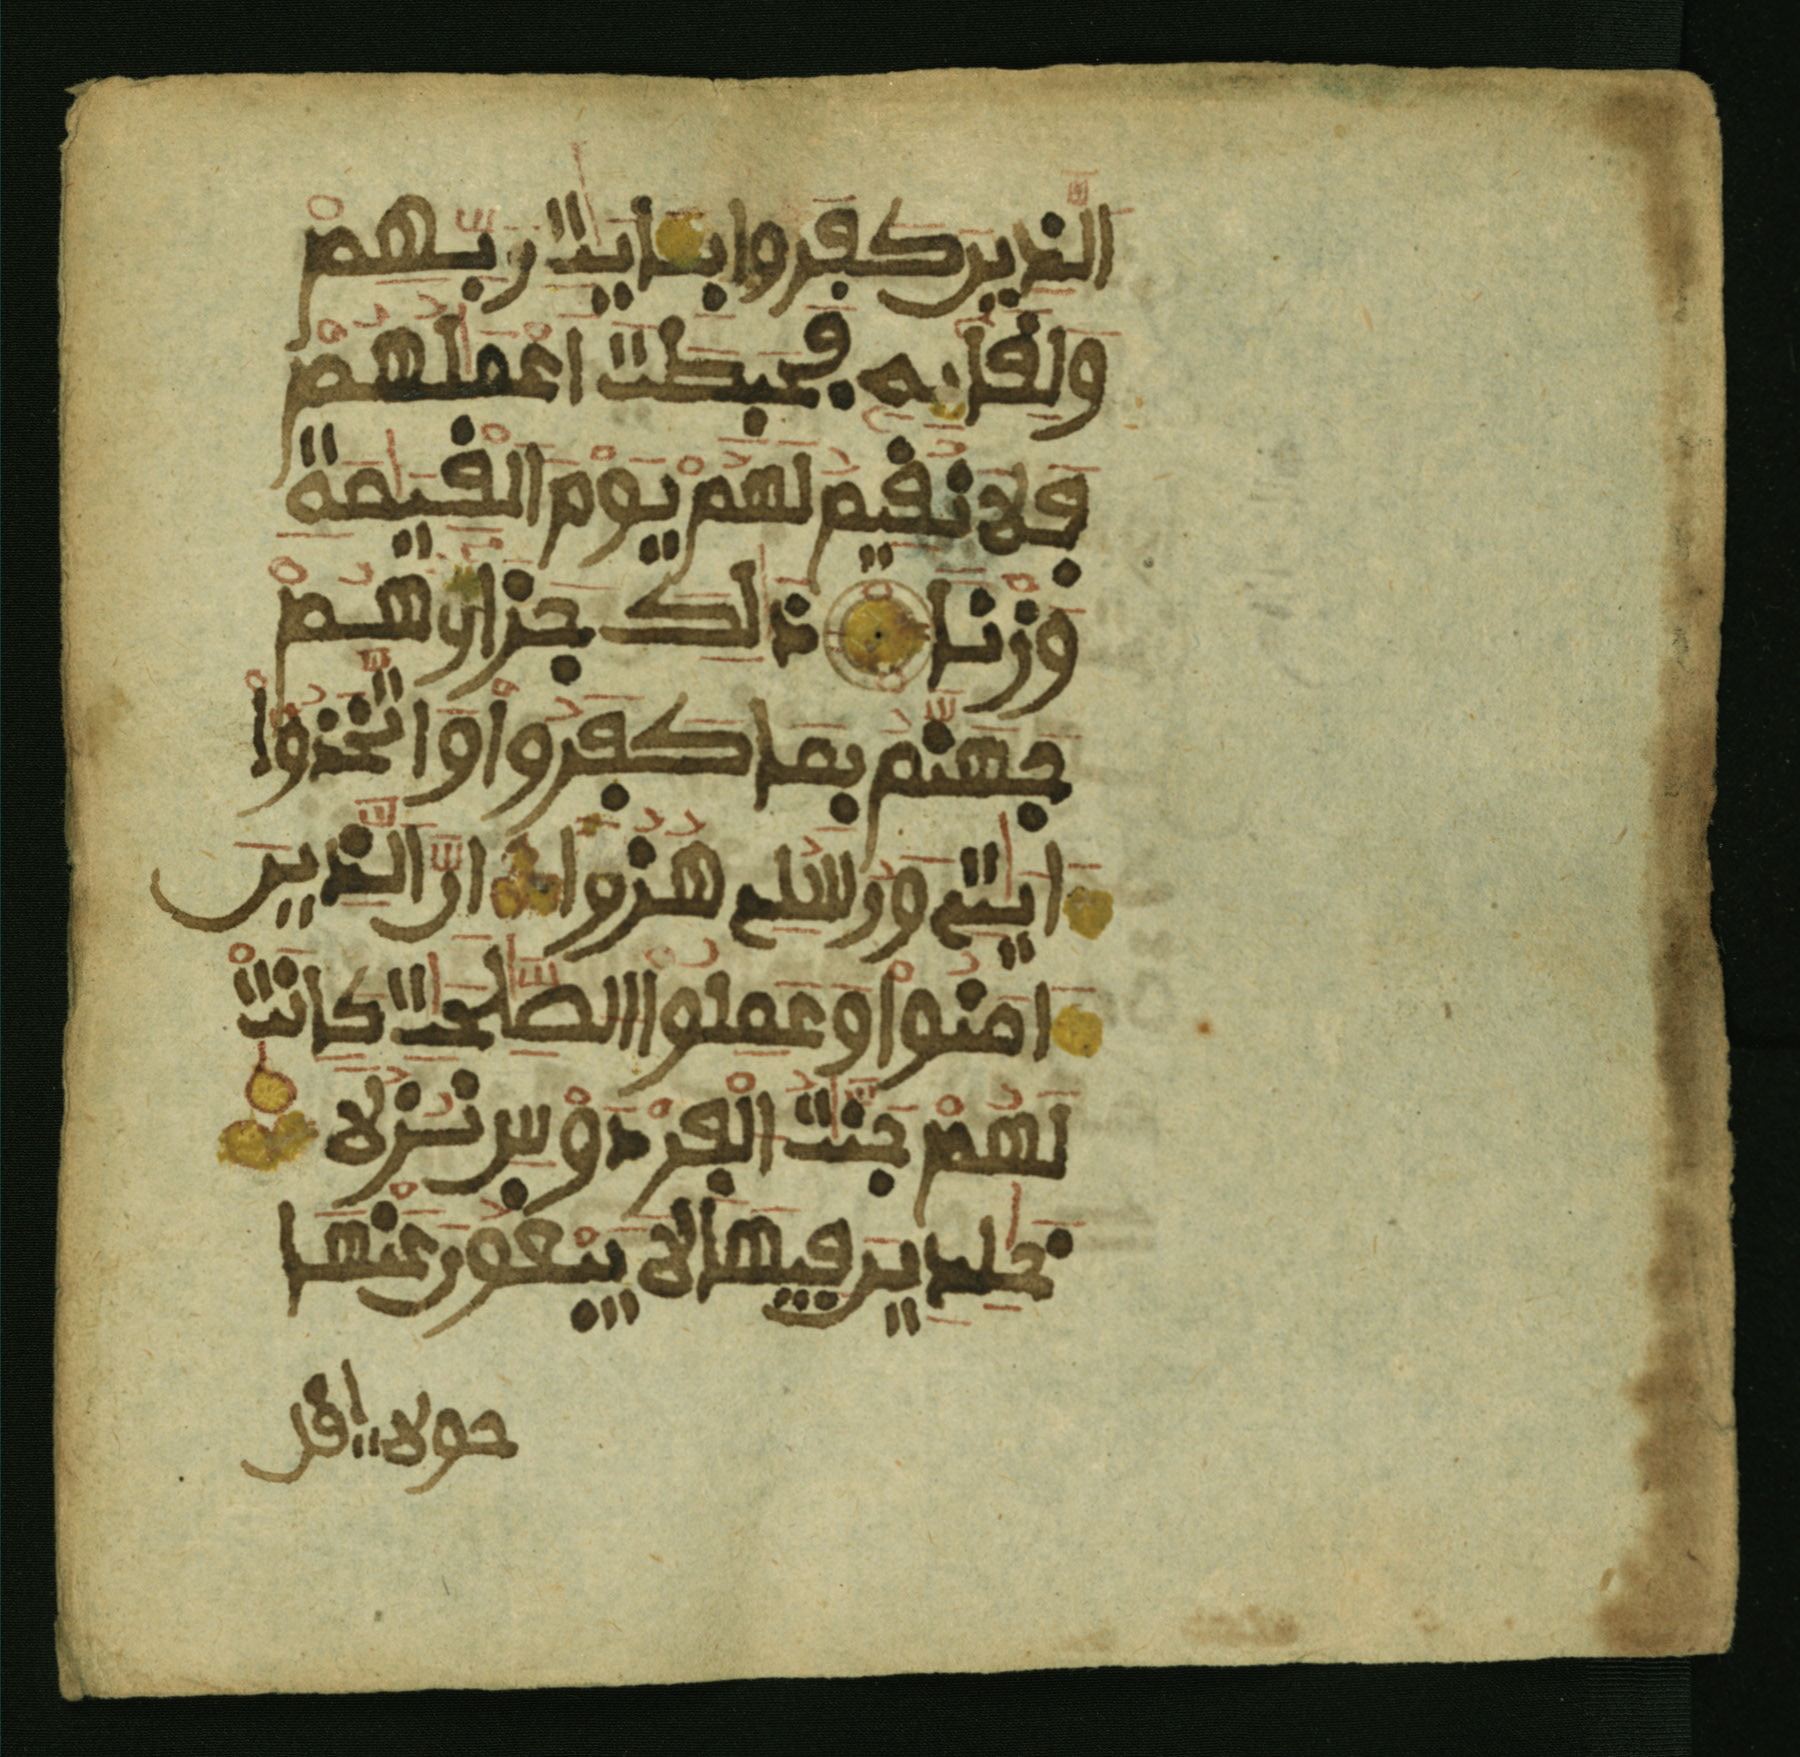 الذين كفروا بايت ربهم
ولقايه فحبطت اعملهم
فلا نقيم لهم يوم القيمة
وزنا ذلك جزاوهم
جهنم بما كفروا واتخذوا
ايتي ورسلي هزوا ان الذين
امنوا وعملوا الصلحت كانت
لهم جنت الفردوس نزلا
خلدين فيها لا يبغون عنها
حولا